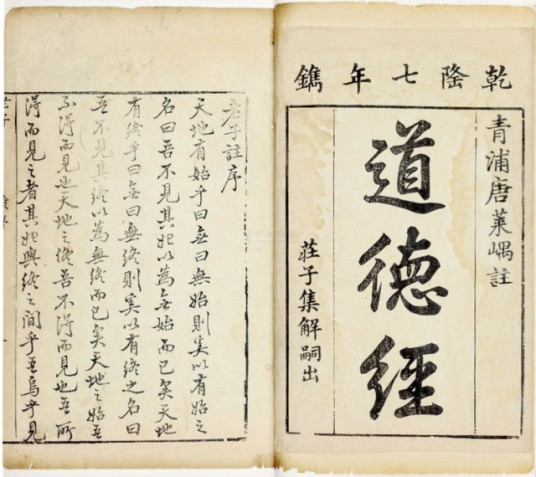 乾隆七年鐫
青浦唐萊嵎註
道德經
莊子集解嗣出
老子註序
天地有始乎曰無始無始則奚以有始之
名曰吾不見其始以為無始而已矣天地
有終乎曰無終無終則奚以有終之名曰
吾不見其終以為無終而已矣天地之始吾
不得而見也天地之終吾不得而見也吾所
得而見之者其始與終之間乎吾烏乎見